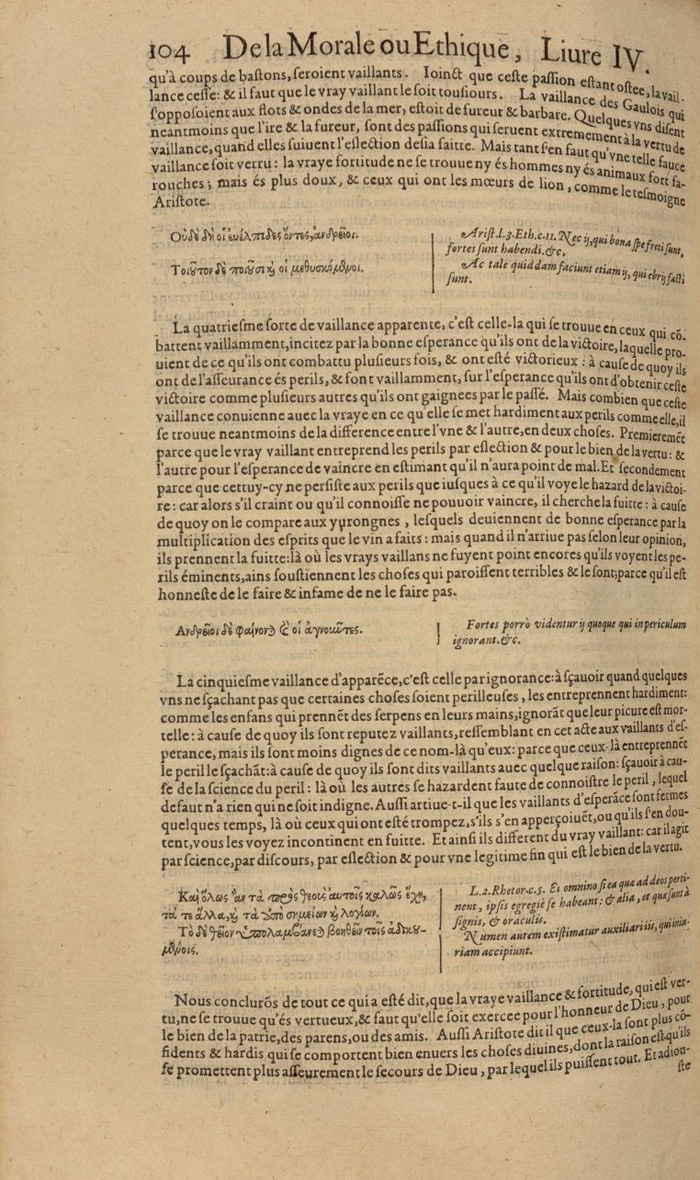 104 De la Morale ou Ethique, Liure IV.
qu'à coups de bastons, seroient vaillants. Ioinct que ceste passion estant ostee, la vail-
lance cesse: & il faut que le vray vaillant le soit tousiours. La vaillance des Gaulois qui
s'opposoient aux flots & ondes de la mer, estoit de fureur & barbare. Quelques vns disent
neantmoins que l'ire & la fureur, sont des passions qui seruent extremement à la vertu de
vaillance, quand elles suiuent l'eslection desia faitte. Mais tant s'en faut qu'vne telle fauce
vaillance soit vertu: la vraye fortitude ne se trouue ny és hommes ny és animaux fort fa-
rouches; mais és plus doux, & ceux qui ont les mœurs de lion, comme le tesmoigne
Aristote.
Οὐδὲ δὴ οἱ εὐέλπιδες ὄντες, ἀνδρεῖοι.
Τοιοῦτον δὲ ποιοῦσι καὶ οἱ μεθυσκόμενοι.
Arist. l. 3. Eth. c. 11. Nec ij, qui bona spe freti sunt,
fortes sunt habendi. &c,
Ac tale quiddam faciunt etiam ij, qui ebrij facti
sunt.
La quatriesme sorte de vaillance apparente, c'est celle-la qui se trouue en ceux qui cō-
battent vaillamment, incitez par la bonne esperance qu'ils ont de la victoire, laquelle pro-
uient de ce qu'ils ont combattu plusieurs fois, & ont esté victorieux: à cause de quoy ils
ont de l'asseurance és perils, & font vaillamment, sur l'esperance qu'ils ont d'obtenir ceste
victoire comme plusieurs autres qu'ils ont gaignees par le passé. Mais combien que ceste
vaillance conuienne auec la vraye en ce qu'elle se met hardiment aux perils comme elle, il
se trouue neantmoins de la difference entre l'vne & l'autre, en deux choses. Premieremēt
parce que le vray vaillant entreprend les perils par eslection & pour le bien de la vertu: &
l'autre pour l'esperance de vaincre en estimant qu'il n'aura point de mal. Et secondement
parce que cettuy-cy ne persiste aux perils que iusques à ce qu'il voye le hazard de la victoi-
re: car alors s'il craint ou qu'il connoisse ne pouuoir vaincre, il cherche la fuitte: à cause
de quoy on le compare aux yurongnes, lesquels deuiennent de bonne esperance par la
multiplication des esprits que le vin a faits: mais quand il n'arriue pas selon leur opinion,
ils prennent la fuitte: là où les vrays vaillans ne fuyent point encores qu'ils voyent les pe-
rils éminents, ains soustiennent les choses qui paroissent terribles & le sont; parce qu'il est
honneste de le faire & infame de ne le faire pas.
Ἀνδρεῖοι δὲ φαίνονται καὶ οἱ ἀγνοοῦντες.
Fortes porrò videntur ij quoque qui in periculum
ignorant. &c.
La cinquiesme vaillance d'apparēce, c'est celle par ignorance: à sçauoir quand quelques
vns ne sçachant pas que certaines choses soient perilleuses, les entreprennent hardiment:
comme les enfans qui prennēt des serpens en leurs mains, ignorāt que leur picure est mor-
telle: à cause de quoy ils sont reputez vaillants, ressemblant en cet acte aux vaillants d'es-
perance, mais ils sont moins dignes de ce nom-là qu'eux: parce que ceux-là entreprennēt
le peril le sçachāt: à cause de quoy ils sont dits vaillants auec quelque raison: sçauoir à cau-
se de la science du peril: là où les autres se hazardent faute de connoistre le peril, lequel
defaut n'a rien qui ne soit indigne. Aussi arriue-t-il que les vaillants d'esperāce sont fermes
quelques temps, là où ceux qui ont esté trompez, s'ils s'en apperçoiuēt, ou qu'ils s'en dou-
tent, vous les voyez incontinent en fuitte. Et ainsi ils different du vray vaillant: car il agit
par science, par discours, par eslection & pour vne legitime fin qui est le bien de la vertu.
Καὶ ὅλως ἂν τὰ πρὸς θεοὺς αὐτοῖς καλῶς ἔχῃ,
τά τε ἄλλα, καὶ τὰ ἀπὸ σημείων καὶ λογίων.
Τὸ δὲ θεῖον ὑπολαμβάνεται βοηθεῖν τοῖς ἀδικου-
μένοις.
L. 2. Rhetor. c. 5. Et omnino si ea quæ ad deos perti-
nent, ipsis egregiè se habeant: & alia, et quæ sunt à
signis, & oraculis.
Numen autem existimatur auxiliari iis, qui iniu-
riam accipiunt.
Nous conclurōs de tout ce qui a esté dit, que la vraye vaillance & fortitude, qui est ver-
tu, ne se trouue qu'és vertueux, & faut qu'elle soit exercee pour l'honneur de Dieu, pour
le bien de la patrie, des parens, ou des amis. Aussi Aristote dit il que ceux-la sont plus cō-
fidents & hardis qui se comportent bien enuers les choses diuines, dont la raison est qu'ils
se promettent plus asseurement le secours de Dieu, par lequel ils puissent tout. Et adiou-
ste